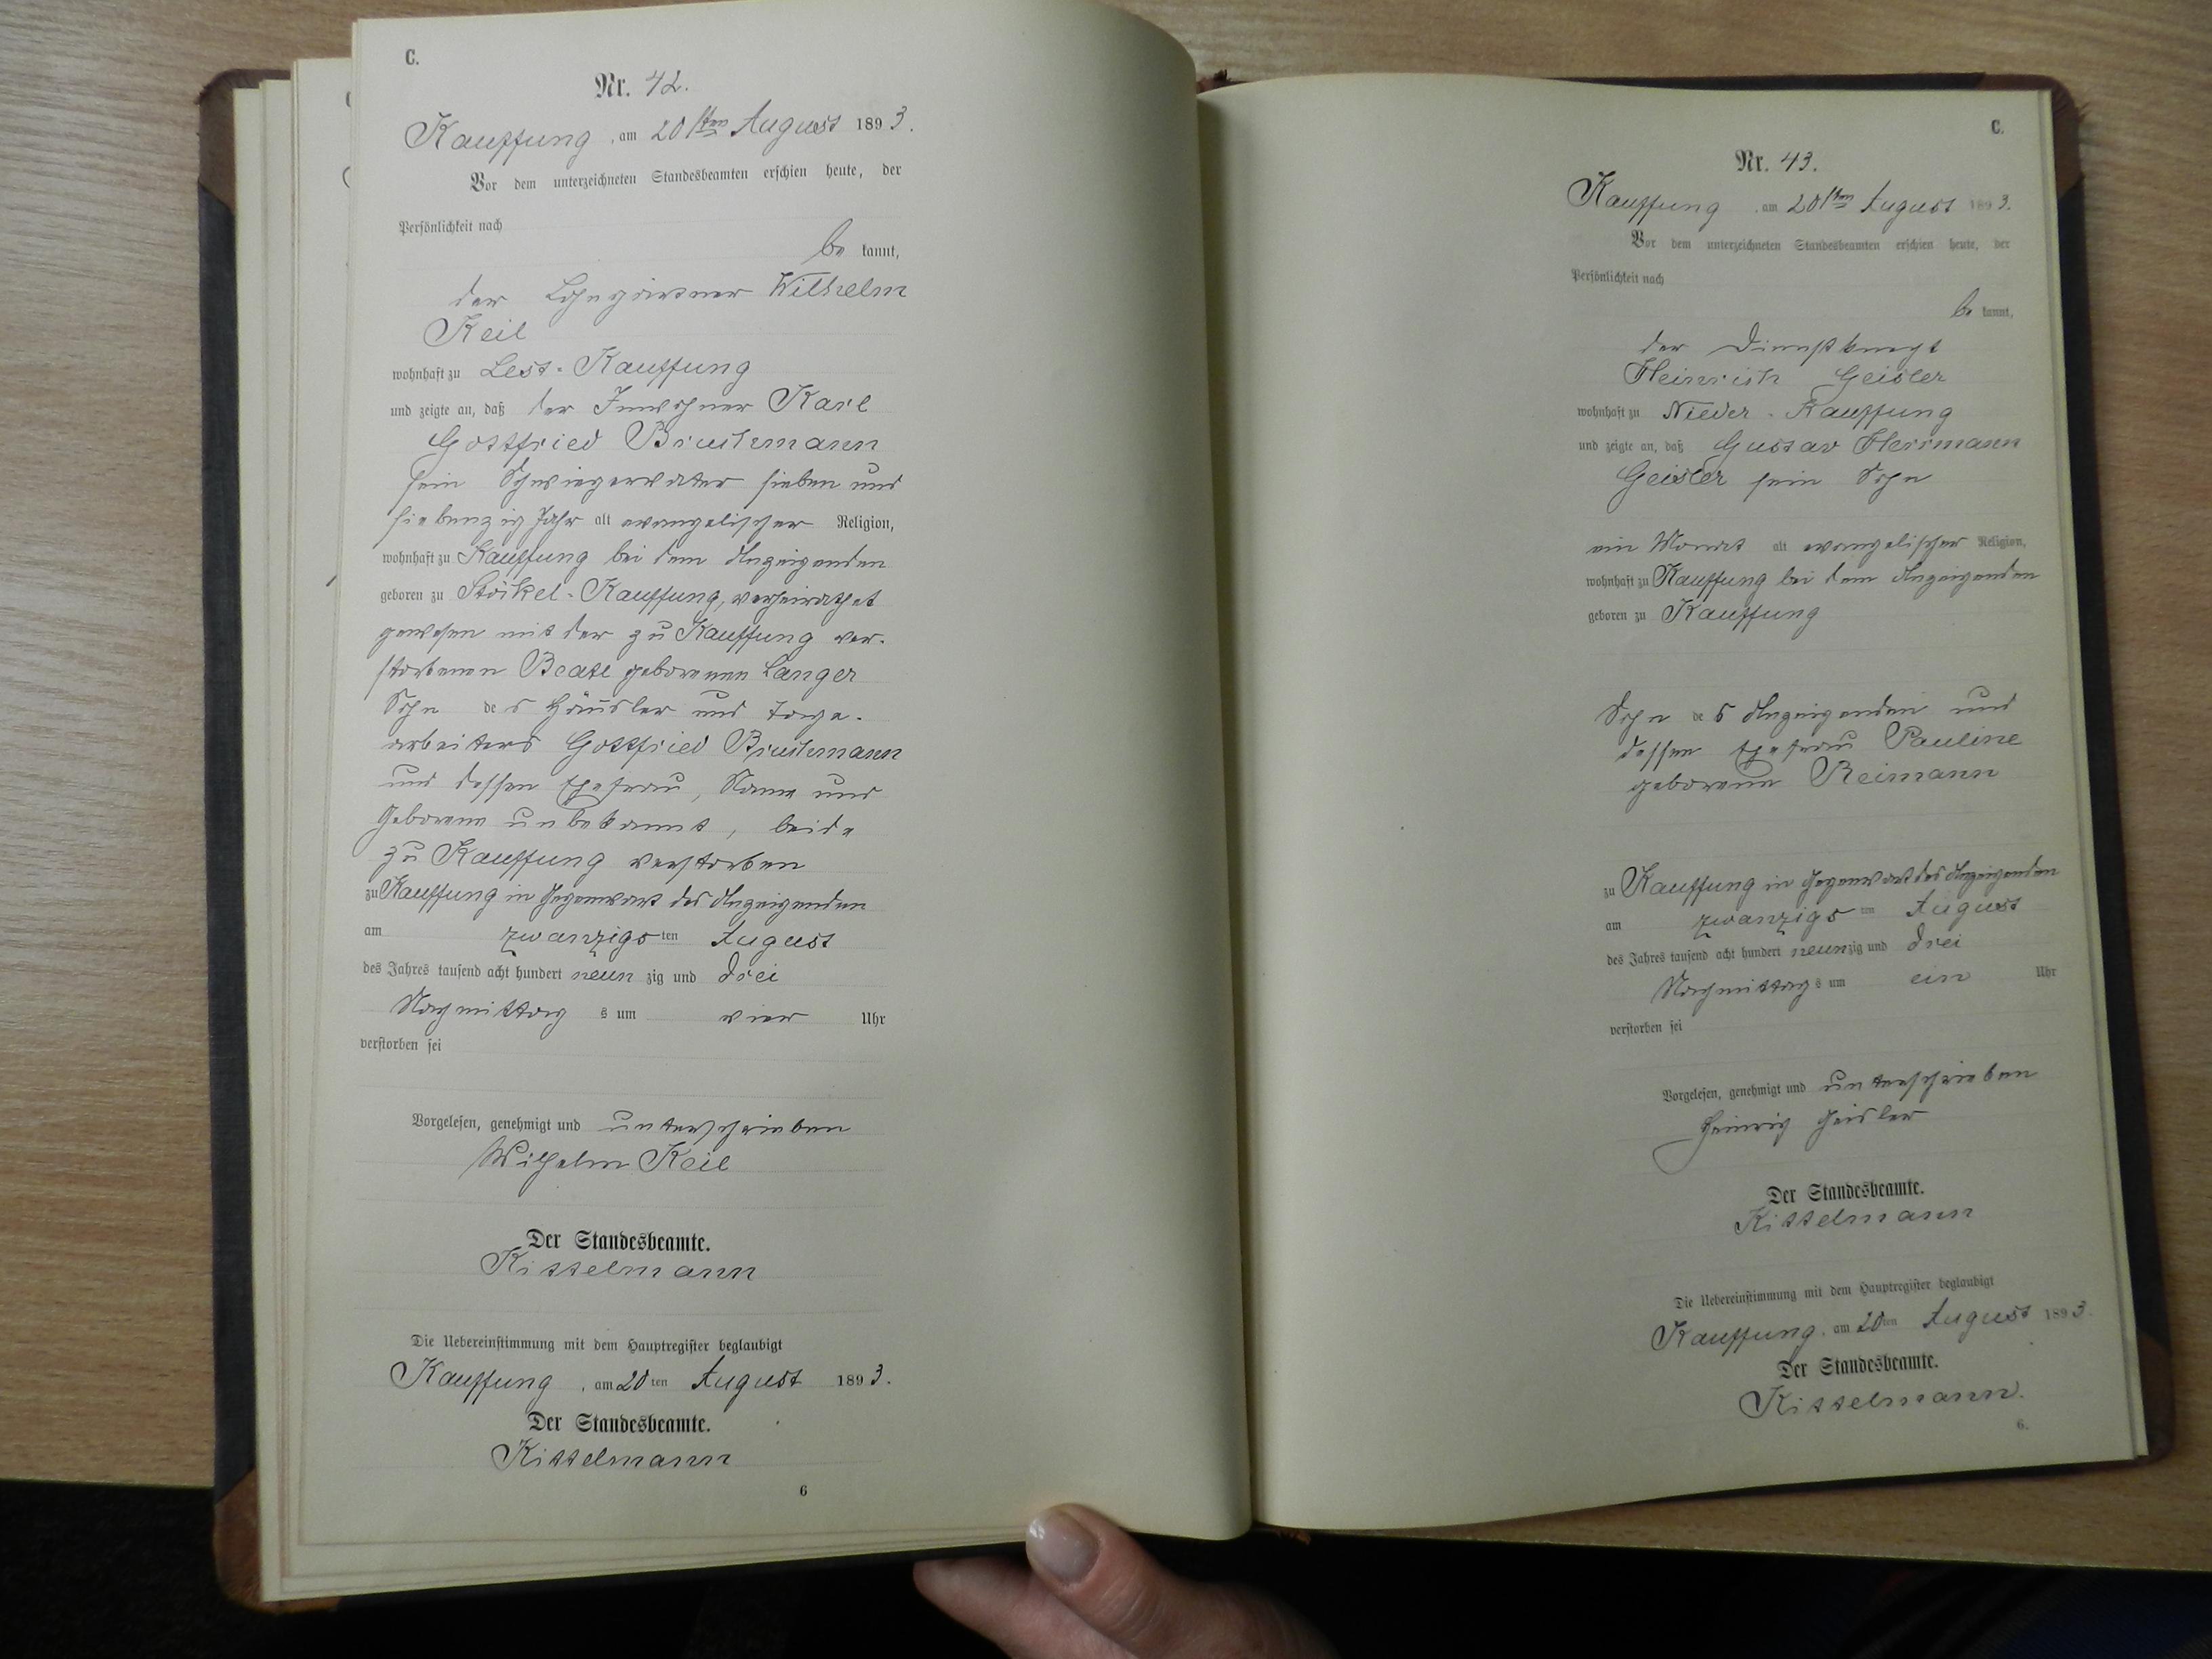 C.
Nr. 42.
Kauffung, am 20sten August 1893.
Vor dem unterzeichneten Standesbeamten erschien heute, der
Persönlichkeit nach
be kannt,
der Lohngärtner Wilhelm
Keil
wohnhaft zu Lest-Kauffung
und zeigte an, daß der Inwohner Karl
Gottfried Bruchmann
sein Schwiegervater sieben und
siebenzig Jahr alt evangelischer Religion,
wohnhaft zu Kauffung bei dem Anzeigenden
geboren zu Stöckel-Kauffung, verheirathet
gewesen mit der zu Kauffung ver-
storbenen Beate geborenen Langer
Sohn des Häusler und Tage-
arbeiters Gottfried Bruchmann
und dessen Ehefrau, Name und
Geborene unbekannt, beide
zu Kauffung verstorben
zu Kauffung in Gegenwart des Anzeigenden
am zwanzigsten August
des Jahres tausend acht hundert neun zig und drei
Nachmittag s um vier Uhr
verstorben sei
Vorgelesen, genehmigt und unterschrieben
Wilhelm Keil
Der Standesbeamte.
Kittelmann
Die Uebereinstimmung mit dem Hauptregister beglaubigt
Kauffung, am 20ten August 1893.
Der Standesbeamte.
Kittelmann
6
C.
Nr. 43.
Kauffung, am 20sten August 1893.
Vor dem unterzeichneten Standesbeamten erschien heute, der
Persönlichkeit nach
be kannt,
der Dienstknecht
Heinrich Geisler
wohnhaft zu Nieder-Kauffung
und zeigte an, daß Gustav Herrmann
Geisler sein Sohn
ein Monat alt evangelischer Religion,
wohnhaft zu Kauffung bei dem Anzeigenden
geboren zu Kauffung
Sohn des Anzeigenden und
dessen Ehefrau Pauline
geborene Reimann
zu Kauffung in Gegenwart des Anzeigenden
am zwanzigsten August
des Jahres tausend acht hundert neunzig und drei
Nachmittag s um ein Uhr
verstorben sei
Vorgelesen, genehmigt und unterschrieben
Heinrich Geisler
Der Standesbeamte.
Kittelmann
Die Uebereinstimmung mit dem Hauptregister beglaubigt
Kauffung, am 20ten August 1893.
Der Standesbeamte.
Kittelmann.
6.